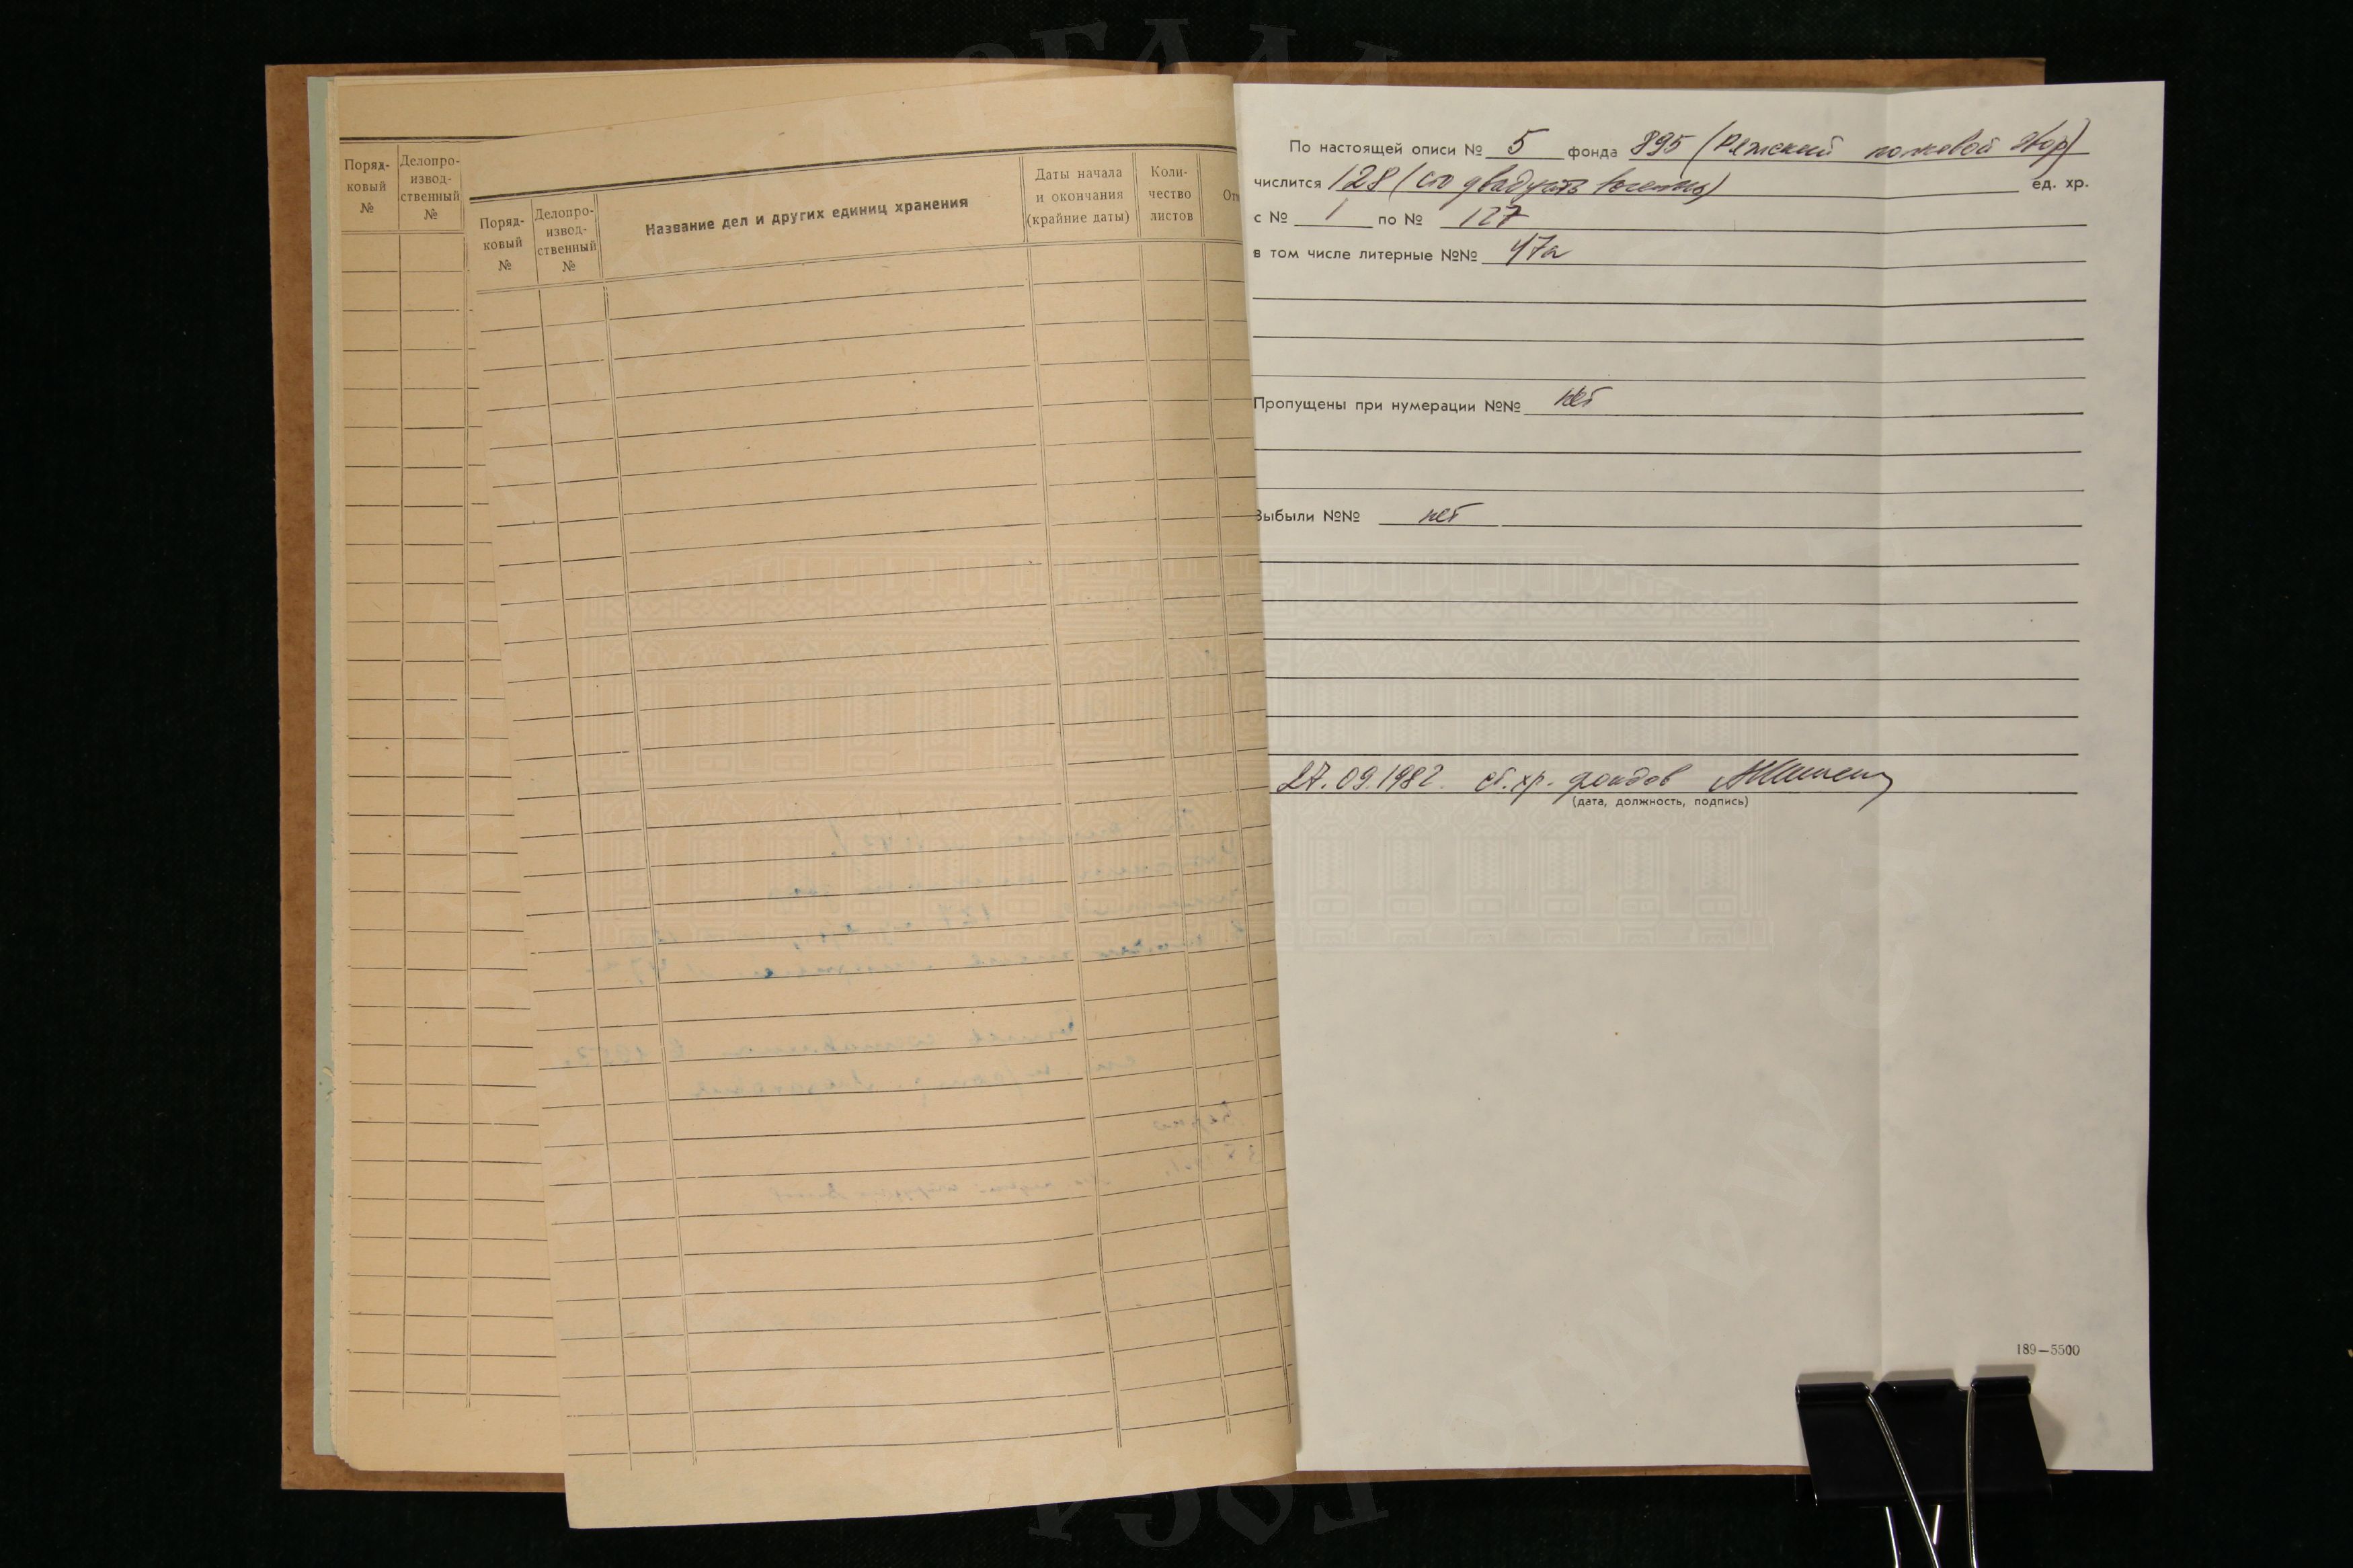 Поряд-
ковый
№
Делопро-
извод-
ственный
№
Поряд-
ковый
№
Делопро-
извод-
ственный
№
Название дел и других единиц хранения
Даты начала
и окончания
(крайние даты)
Коли-
чество
листов
От
По настоящей описи № 5 фонда 895 (Ряжский полковой двор)
числится 128 (сто двадцать восемь) ед. хр.
с № 1 по № 127
в том числе литерные №№ 47а
Пропущены при нумерации №№ нет
Выбыли №№ нет
27.09.1982. ст. хр. фондов
(дата, должность, подпись)
189—5500